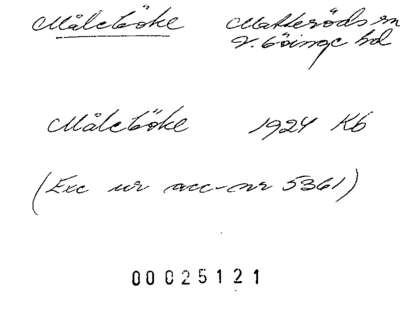 Måleböke Matteröds sn
V. Göinge hd
Måleböke 1924 Kb
(Exc ur acc-nr 5361)
00025121